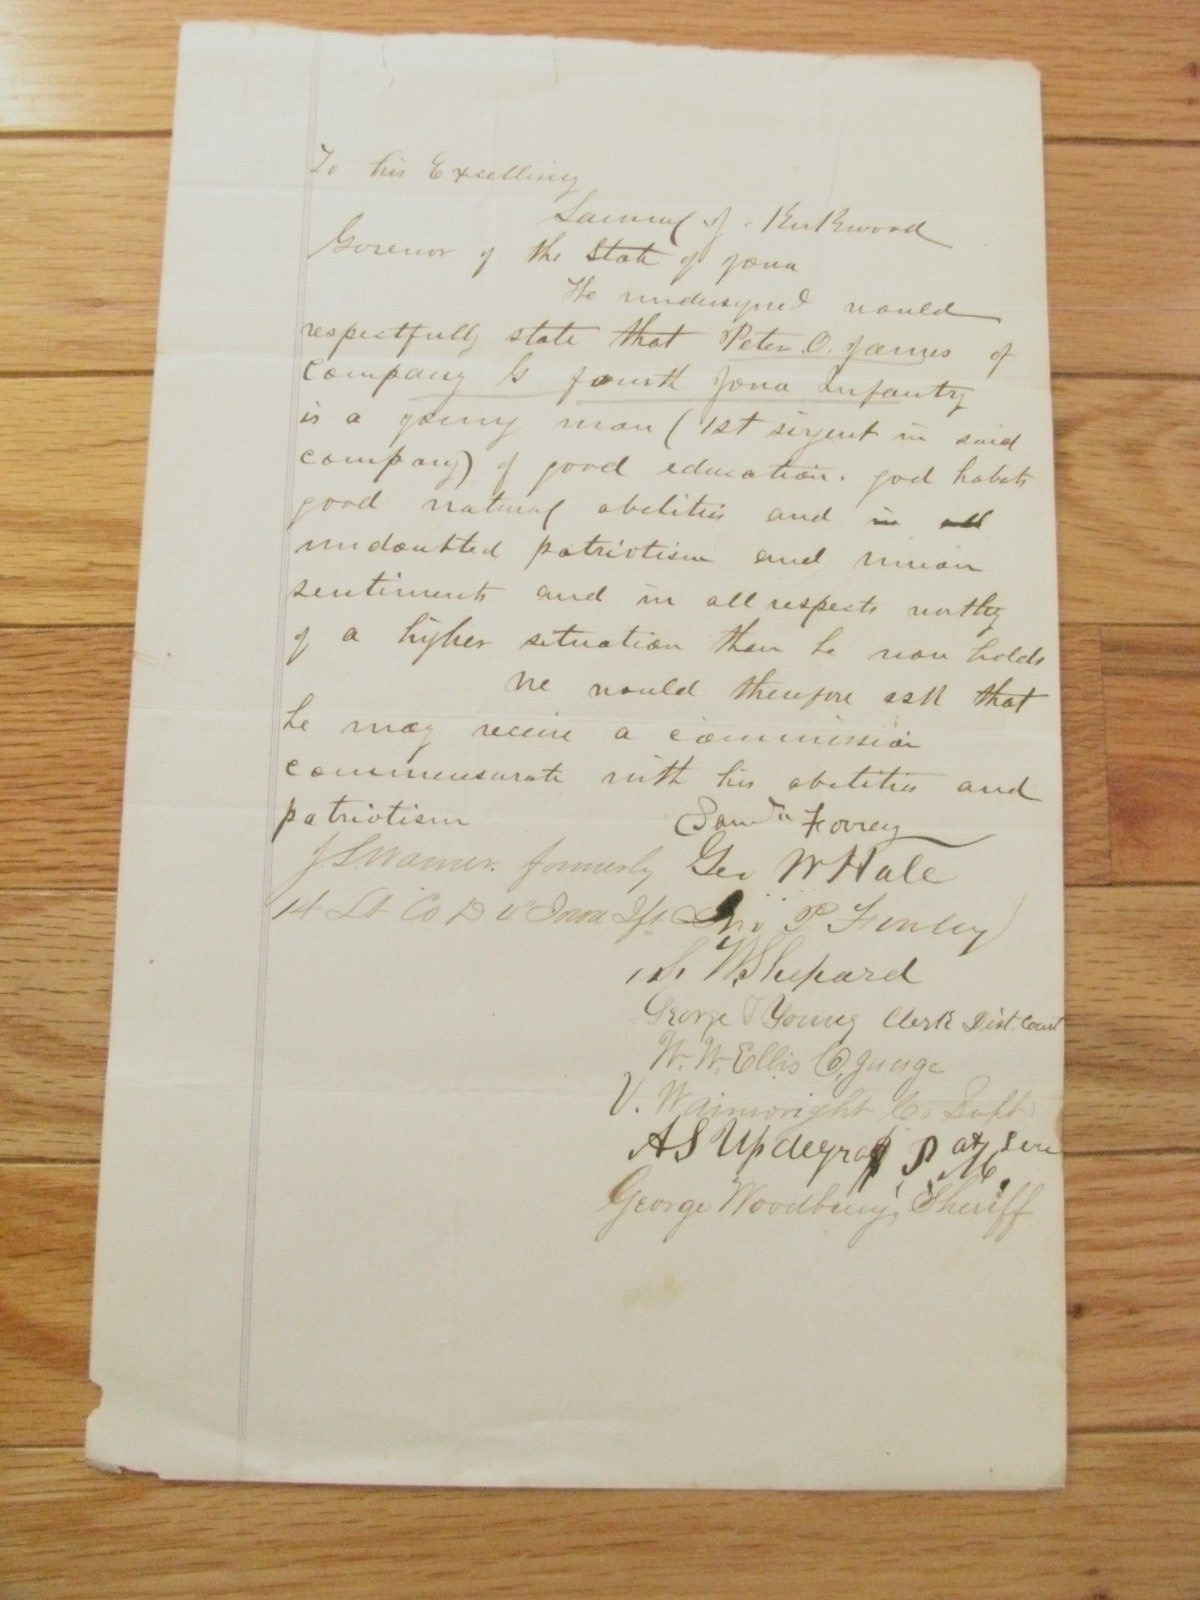 To his Excellincy
Samuel J. Kirkwood
Govenor of the State of Iowa
The undersigned would
respectfully state that Peter O. James of
Company G fourth Iowa Infantry
is a young man (1st sirgent in said
company) of good education. god habits
good natural abilities and in all
undoubted patriotism and union
sentiments and in all respects worthy
of a higher situation than he now holds
We would therefore ask that
he may receive a commission
commensurate with his abilities and
patriotism Saml Forrey
J. S. Warner. formerly Geo W Hale
1st Lt Co D Iowa P Finley
S. W. Shepard
George T Young Clerk Dist. Court
W. W. Ellis Co, Judge
V. Wainwright Co Supt
A S Updegraf P M.
George Woodbury, Sheriff